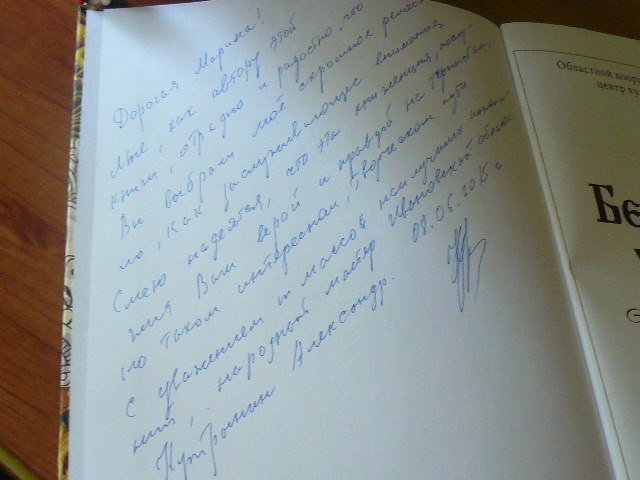 Дорогая Марина!
Мне, как автору этой
книги, отрадно и радостно, что
Вы выбрали моё скромное ремес-
ло, как заслуживающее внимания
Смею надеятся, что эта книженция, послу-
жит Вам верой и правдой на тернистом,
но таком интересном, творческом пути
С уважением и массой наилучших пожела-
ний, народный мастер Ивановской области
Александр. 08.06.2015 г
Областной коор
центр ку
Бе